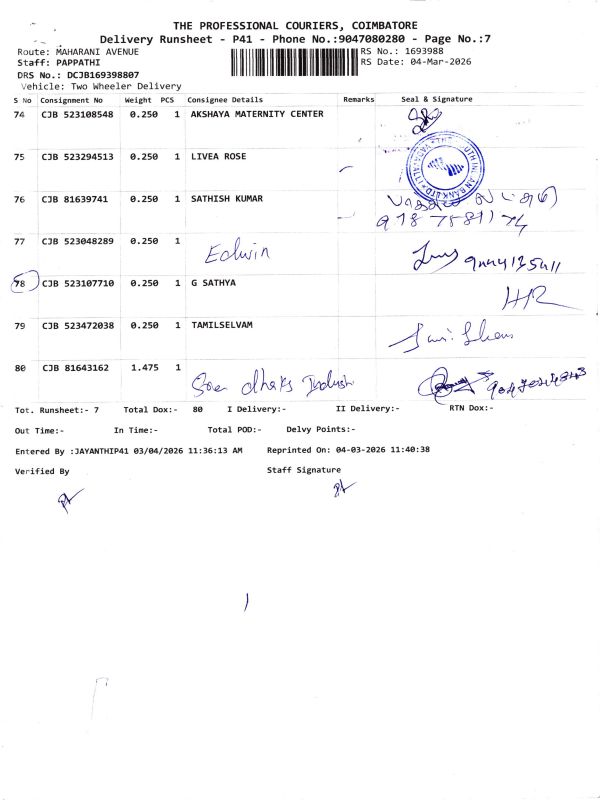 THE PROFESSIONAL COURIERS, COIMBATORE
Delivery Runsheet - P41 - Phone No.:9047080280 - Page No.:7
Route: MAHARANI AVENUE RS No.: 1693988
Staff: PAPPATHI RS Date: 04-Mar-2026
DRS No.: DCJB169398807
Vehicle: Two Wheeler Delivery
S No Consignment No Weight PCS Consignee Details Remarks Seal & Signature
74 CJB 523108548 0.250 1 AKSHAYA MATERNITY CENTER
75 CJB 523294513 0.250 1 LIVEA ROSE
76 CJB 81639741 0.250 1 SATHISH KUMAR
77 CJB 523048289 0.250 1 Edwin
78 CJB 523107710 0.250 1 G SATHYA
79 CJB 523472038 0.250 1 TAMILSELVAM
80 CJB 81643162 1.475 1 Sree
Tot. Runsheet:- 7 Total Dox:- 80 I Delivery:- II Delivery:- RTN Dox:-
Out Time:- In Time:- Total POD:- Delvy Points:-
Entered By :JAYANTHIP41 03/04/2026 11:36:13 AM Reprinted On: 04-03-2026 11:40:38
Verified By Staff Signature